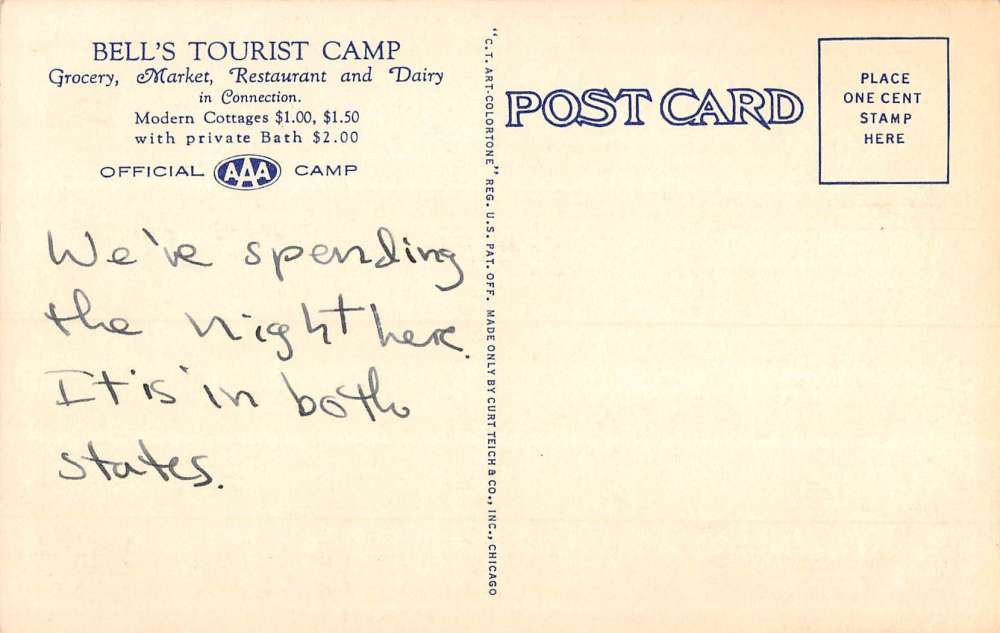 BELL'S TOURIST CAMP
Grocery, Market, Restaurant and Dairy
in Connection.
Modern Cottages $1.00, $1.50
with private Bath $2.00
OFFICIAL AAA CAMP
We've spending
the night here.
It is in both
states.
"C. T. ART-COLORTONE" REG. U. S. PAT. OFF. MADE ONLY BY CURT TEICH & CO., INC., CHICAGO
POST CARD
PLACE
ONE CENT
STAMP
HERE